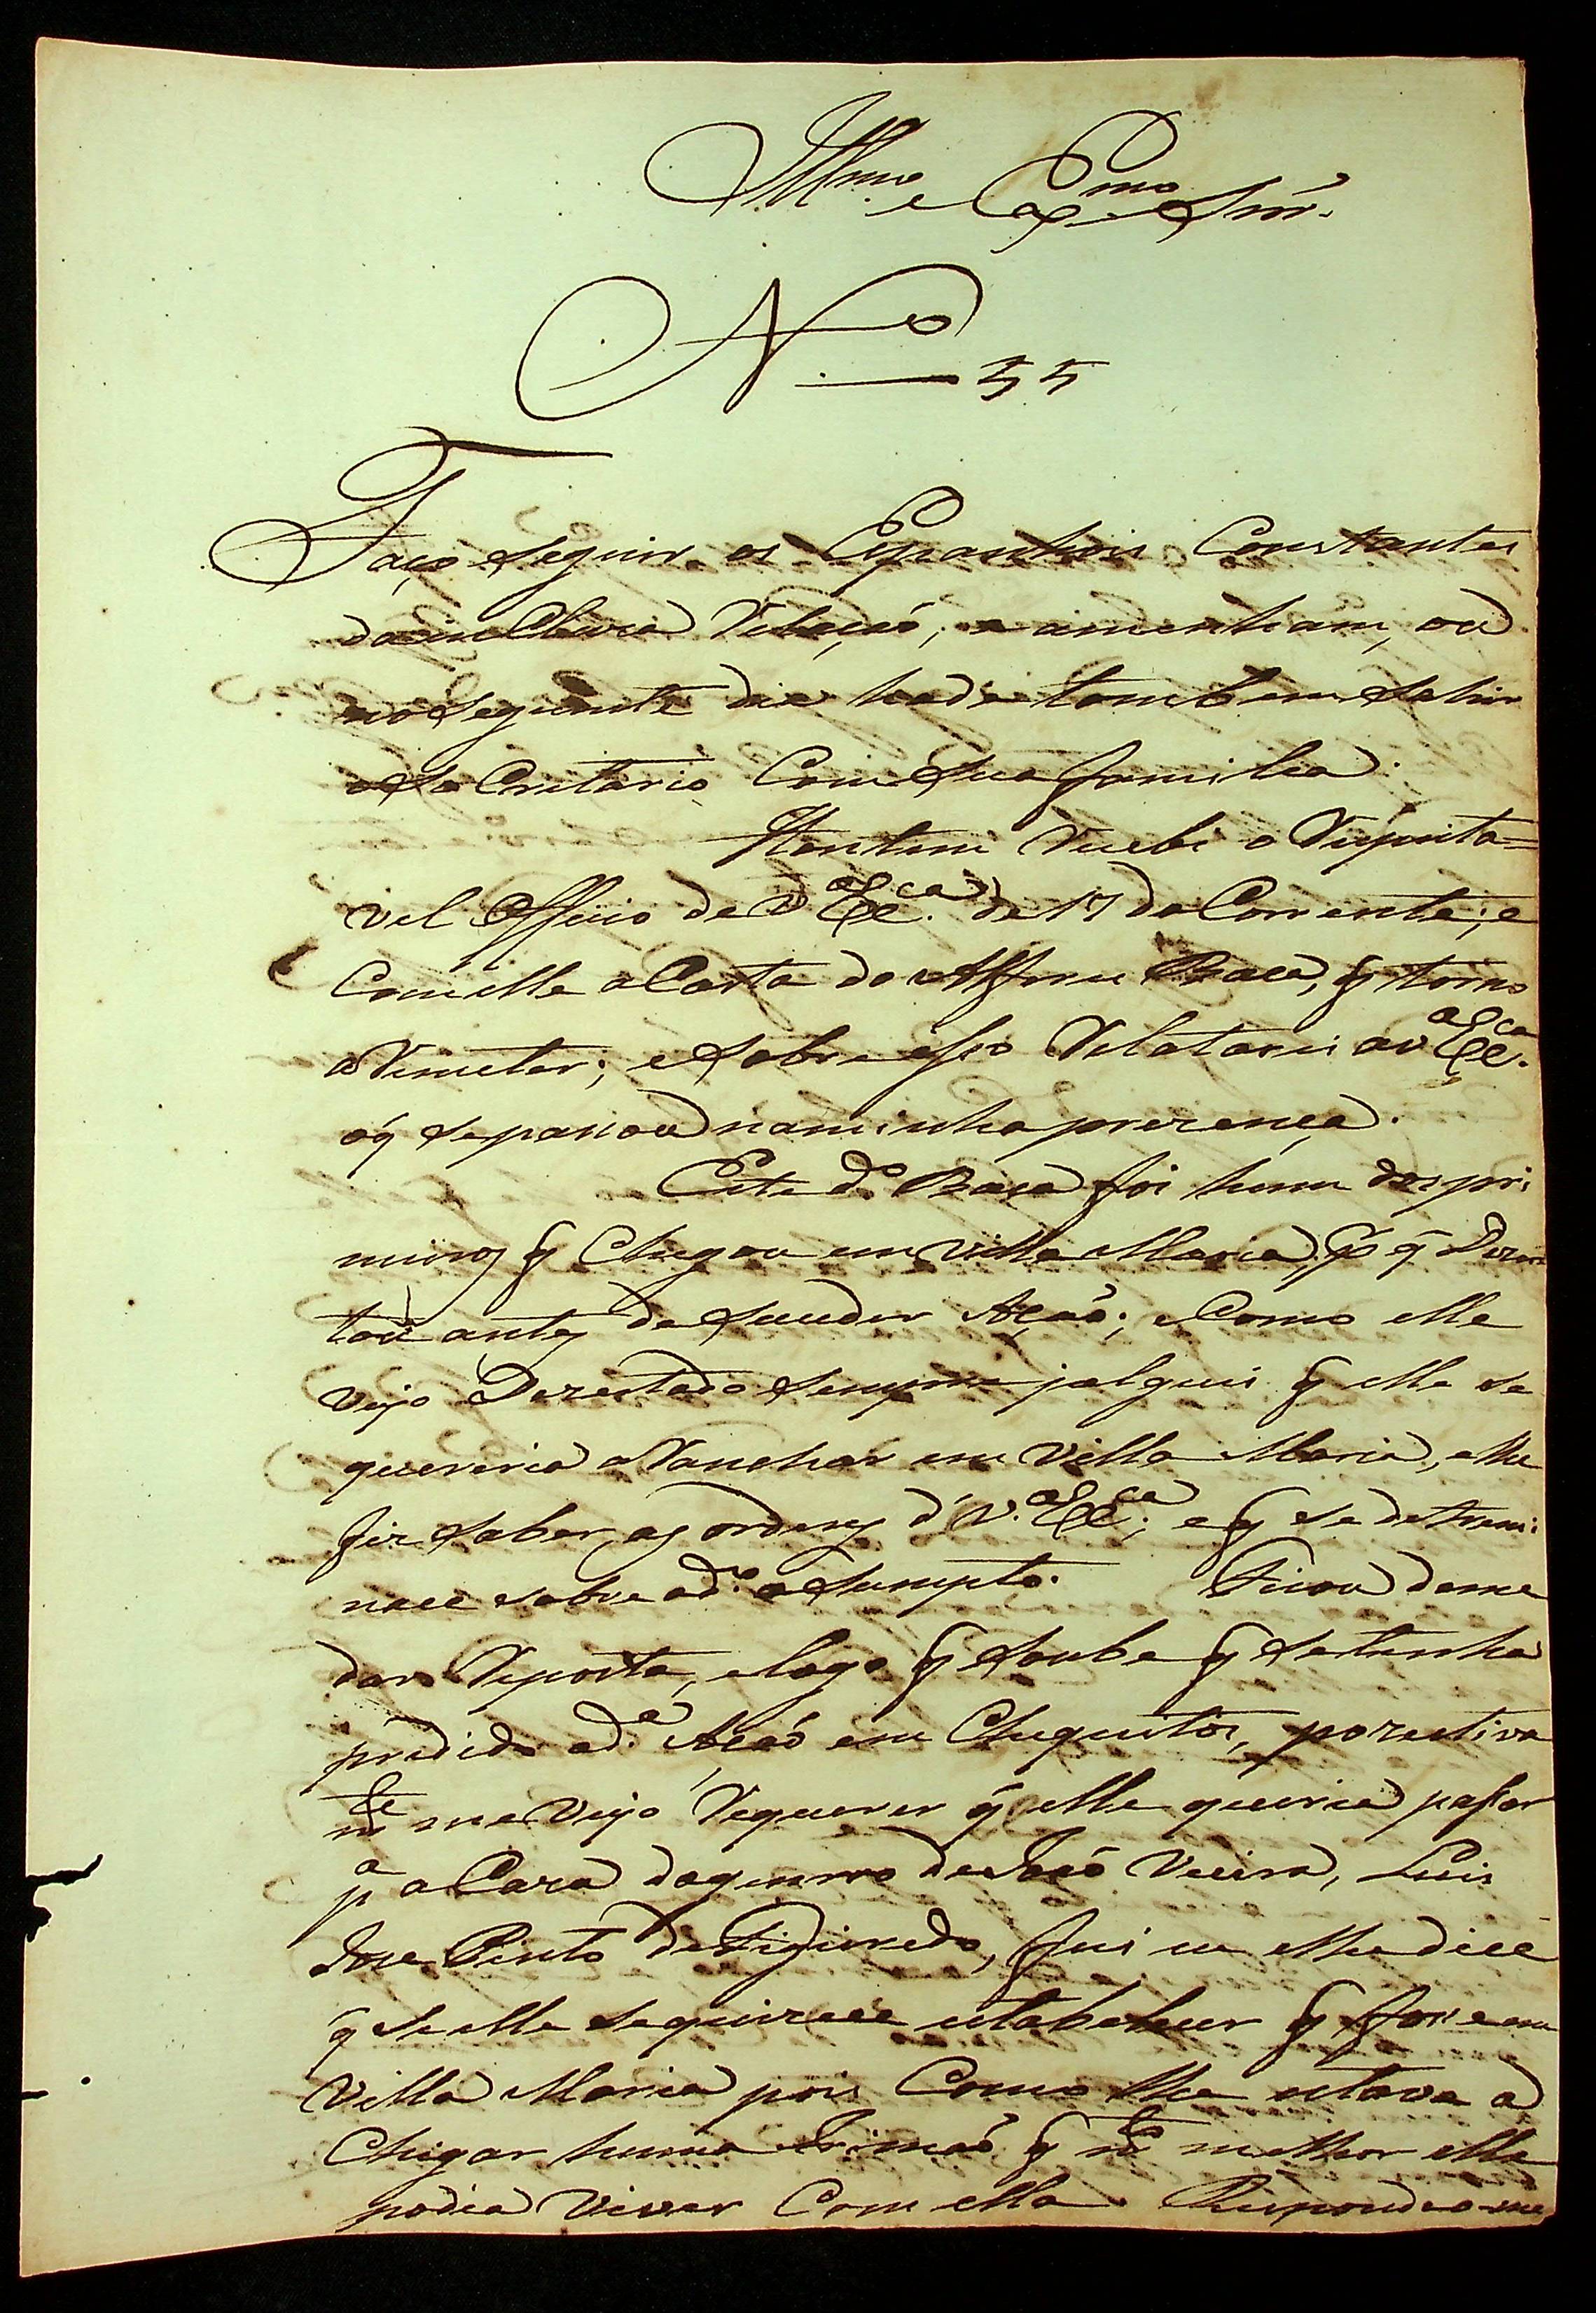 Illmo e Exmo Snr.
No 55
Faço seguir os Espanhois Constantes
da incluza Relação; e amenham, ou
no seguinte dia hade tambem sahir
o Secretario Com sua familia.
Hontem Recebi o Respeita=
vel Officio de V Exca. de 17 do Corrente; e
Com elle a Carta do Alferes Baca, q torno
a Remeter; e sobre isso Relatarei a V Exca.
o q se passou na minha prezença.
Este do Baca foi hum dos pri
meiros q Chegou em Villa Maria, q Dezer
tou antes de suceder Ação; e Como elle
veyo Dezertado sempre julguei q elle se
quereria aRanchar em Villa Maria, e lhe
fiz saber as ordens d' V. Exca; e q se detremi
nace sobre o do. asumpto. Ficou de me
dar Reposta, e logo q soube q se tinha
predido a da Ação em Chiquitos, por
me veyo Requerer q elle queria passar
pa a Caza do genrro de João Vieira, Luis
Joze Pinto de Figueiredo, fui eu e lhe dice
q se elle se quizece estabelecer q fose em
Villa Maria pois Como lhe estava a
Chegar huma Irmaã q melhor elle
podia viver Com ella. Respondeo-me